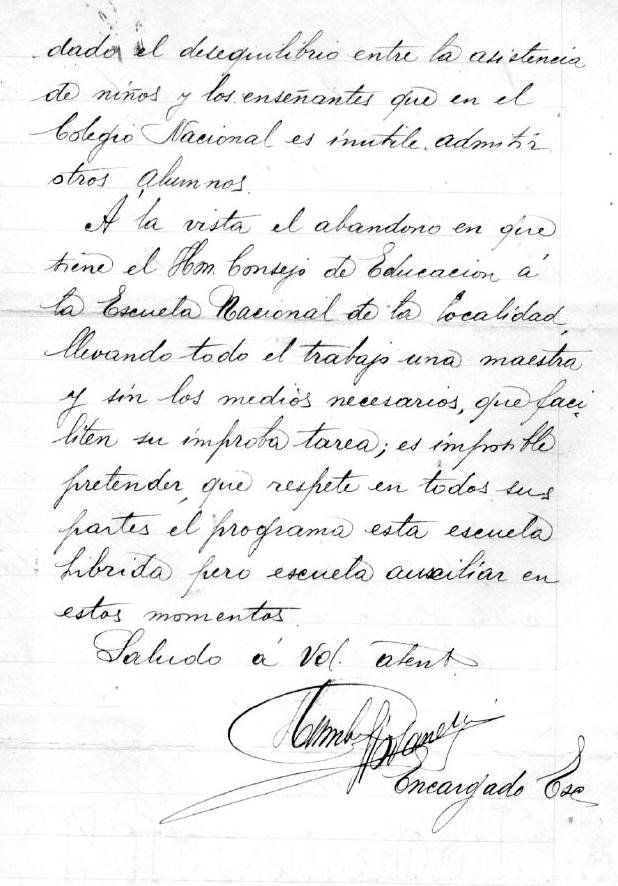 dado el desequilibrio entre la asistencia
de niños y los enseñantes que en el
Colegio Nacional es inutile admitir
otros alumnos.
Á la vista el abandono en que
tiene el Hon. Consejo de Educacion á
la Escuela Nacional de la localidad,
llevando todo el trabajo una maestra
y sin los medios necesarios, que faci-
liten su improba tarea; es imposible
pretender, que respete en todos sus
partes el programa esta escuela
hibrida pero escuela auxiliar en
estos momentos.
Saludo á Vd. atent.
Encargado Esc